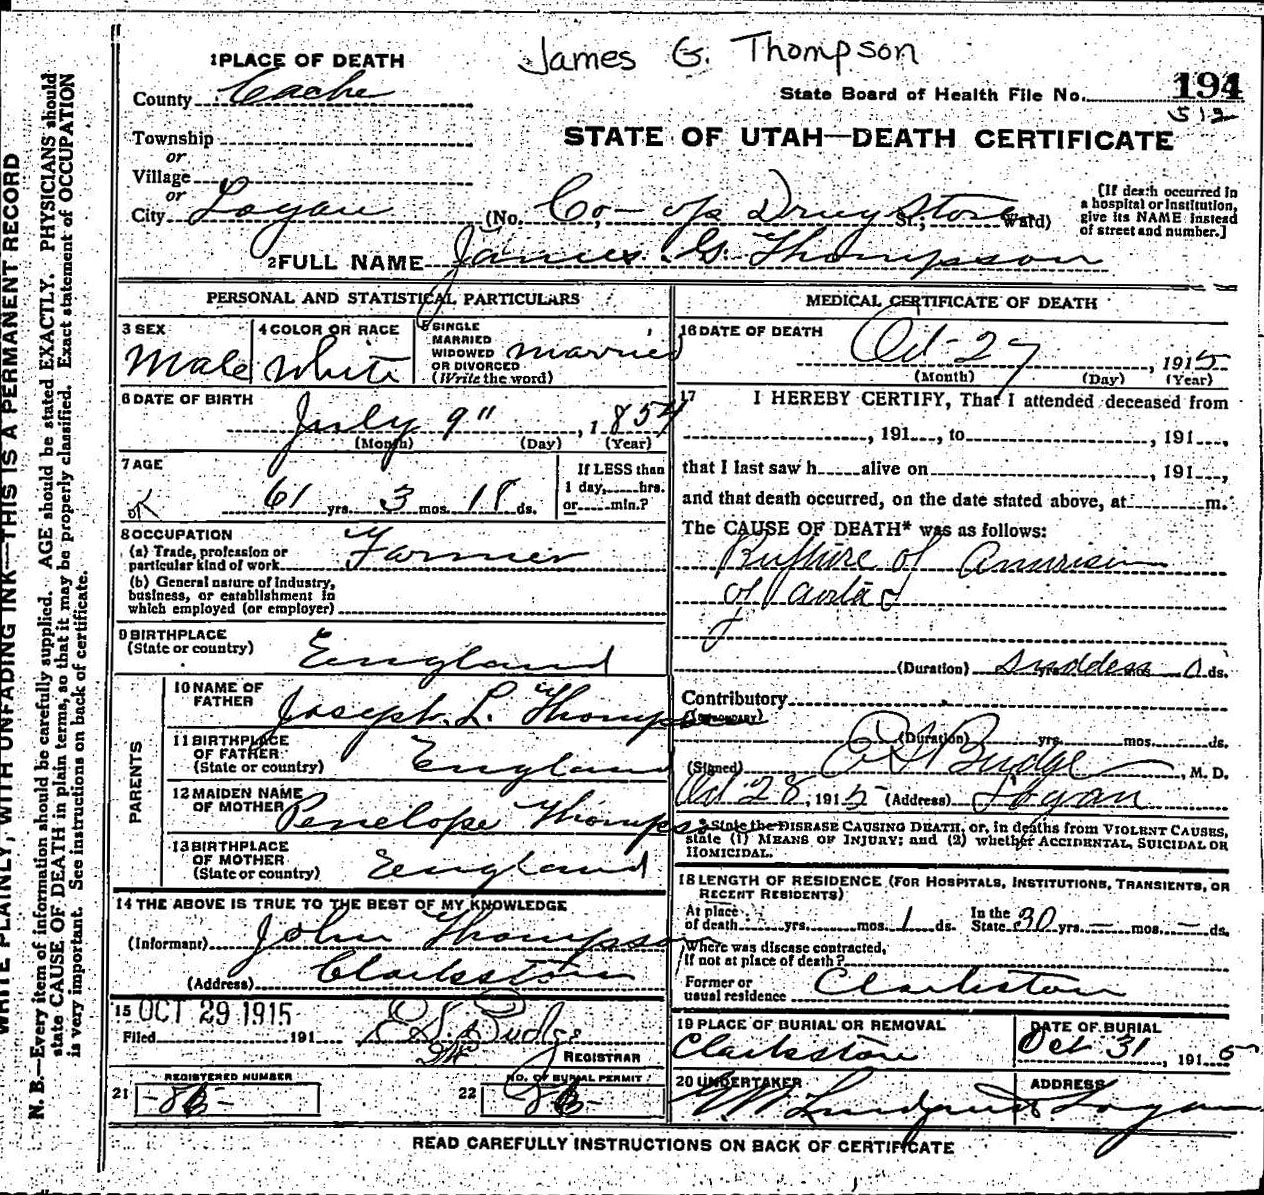 James G. Thompson
1 PLACE OF DEATH
County Cache
State Board of Health File No. 194
512
STATE OF UTAH—DEATH CERTIFICATE
Township
or
Village
or
City Logan (No. Co-op Drug Store St.; Ward)
[If death occurred in
a hospital or institution,
give its NAME instead
of street and number.]
2 FULL NAME James G. Thompson
PERSONAL AND STATISTICAL PARTICULARS
3 SEX
Male
4 COLOR OR RACE
White
5 SINGLE
MARRIED
WIDOWED
OR DIVORCED
(Write the word)
married
6 DATE OF BIRTH
July 9" , 1 854
(Month) (Day) (Year)
7 AGE
61 yrs. 3 mos. 18 ds.
If LESS than
1 day, hrs.
or min.?
ok
8 OCCUPATION
(a) Trade, profession or
particular kind of work Farmer
(b) General nature of industry,
business, or establishment in
which employed (or employer)
9 BIRTHPLACE
(State or country) England
PARENTS
10 NAME OF
FATHER Joseph L. Thompson
11 BIRTHPLACE
OF FATHER
(State or country) England
12 MAIDEN NAME
OF MOTHER Penelope Thompson
13 BIRTHPLACE
OF MOTHER
(State or country) England
14 THE ABOVE IS TRUE TO THE BEST OF MY KNOWLEDGE
(Informant) John Thompson
(Address) Clarkston
15 OCT 29 1915
Filed 191 E S. Budge
REGISTRAR
REGISTERED NUMBER
21
NO. OF BURIAL PERMIT
22
MEDICAL CERTIFICATE OF DEATH
16 DATE OF DEATH
Oct-27 , 1915
(Month) (Day) (Year)
17 I HEREBY CERTIFY, That I attended deceased from
, 191 , to , 191 ,
that I last saw h alive on , 191 ,
and that death occurred, on the date stated above, at m.
The CAUSE OF DEATH* was as follows:
Rupture of
of aorta
(Duration) yrs. mos. ds.
Contributory
(SECONDARY)
(Duration) yrs. mos. ds.
(Signed) Budge , M. D.
Oct 28, 1915 (Address) Logan
* State the DISEASE CAUSING DEATH, or, in deaths from VIOLENT CAUSES,
state (1) MEANS OF INJURY; and (2) whether ACCIDENTAL, SUICIDAL OR
HOMICIDAL.
18 LENGTH OF RESIDENCE (FOR HOSPITALS, INSTITUTIONS, TRANSIENTS, OR
RECENT RESIDENTS)
At place
of death yrs. mos. 1 ds. In the
State 30 yrs. — mos. — ds.
Where was disease contracted,
If not at place of death?
Former or
usual residence Clarkston
19 PLACE OF BURIAL OR REMOVAL
Clarkston
DATE OF BURIAL
Oct 31 , 1915
20 UNDERTAKER
ADDRESS
Logan
READ CAREFULLY INSTRUCTIONS ON BACK OF CERTIFICATE
WRITE PLAINLY, WITH UNFADING INK—THIS IS A PERMANENT RECORD
N. B.—Every item of information should be carefully supplied. AGE should be stated EXACTLY. PHYSICIANS should
state CAUSE OF DEATH in plain terms, so that it may be properly classified. Exact statement of OCCUPATION
is very important. See instructions on back of certificate.